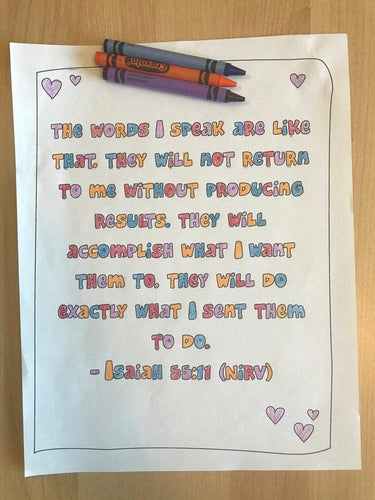 Crayola
THE WORDS I SPEAK ARE LIKE
THAT. THEY WILL NOT RETURN
TO ME WITHOUT PRODUCING
RESULTS. THEY WILL
ACCOMPLISH WHAT I WANT
THEM TO. THEY WILL DO
EXACTLY WHAT I SENT THEM
TO DO.
- ISAIAH 55:11 (NIRV)